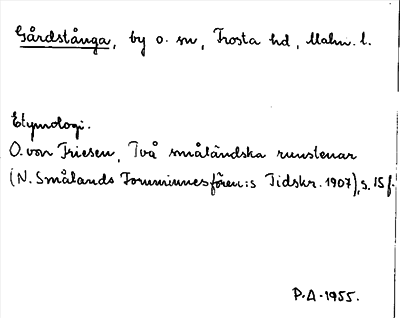 Gårdstånga, by o. sn, Frosta hd, Malm. l.
Etymologi.
O. von Friesen, Två småländska runstenar
(N. Smålands Fornminnesfören:s Tidskr. 1907), s. 15 f.
P.A. 1955.